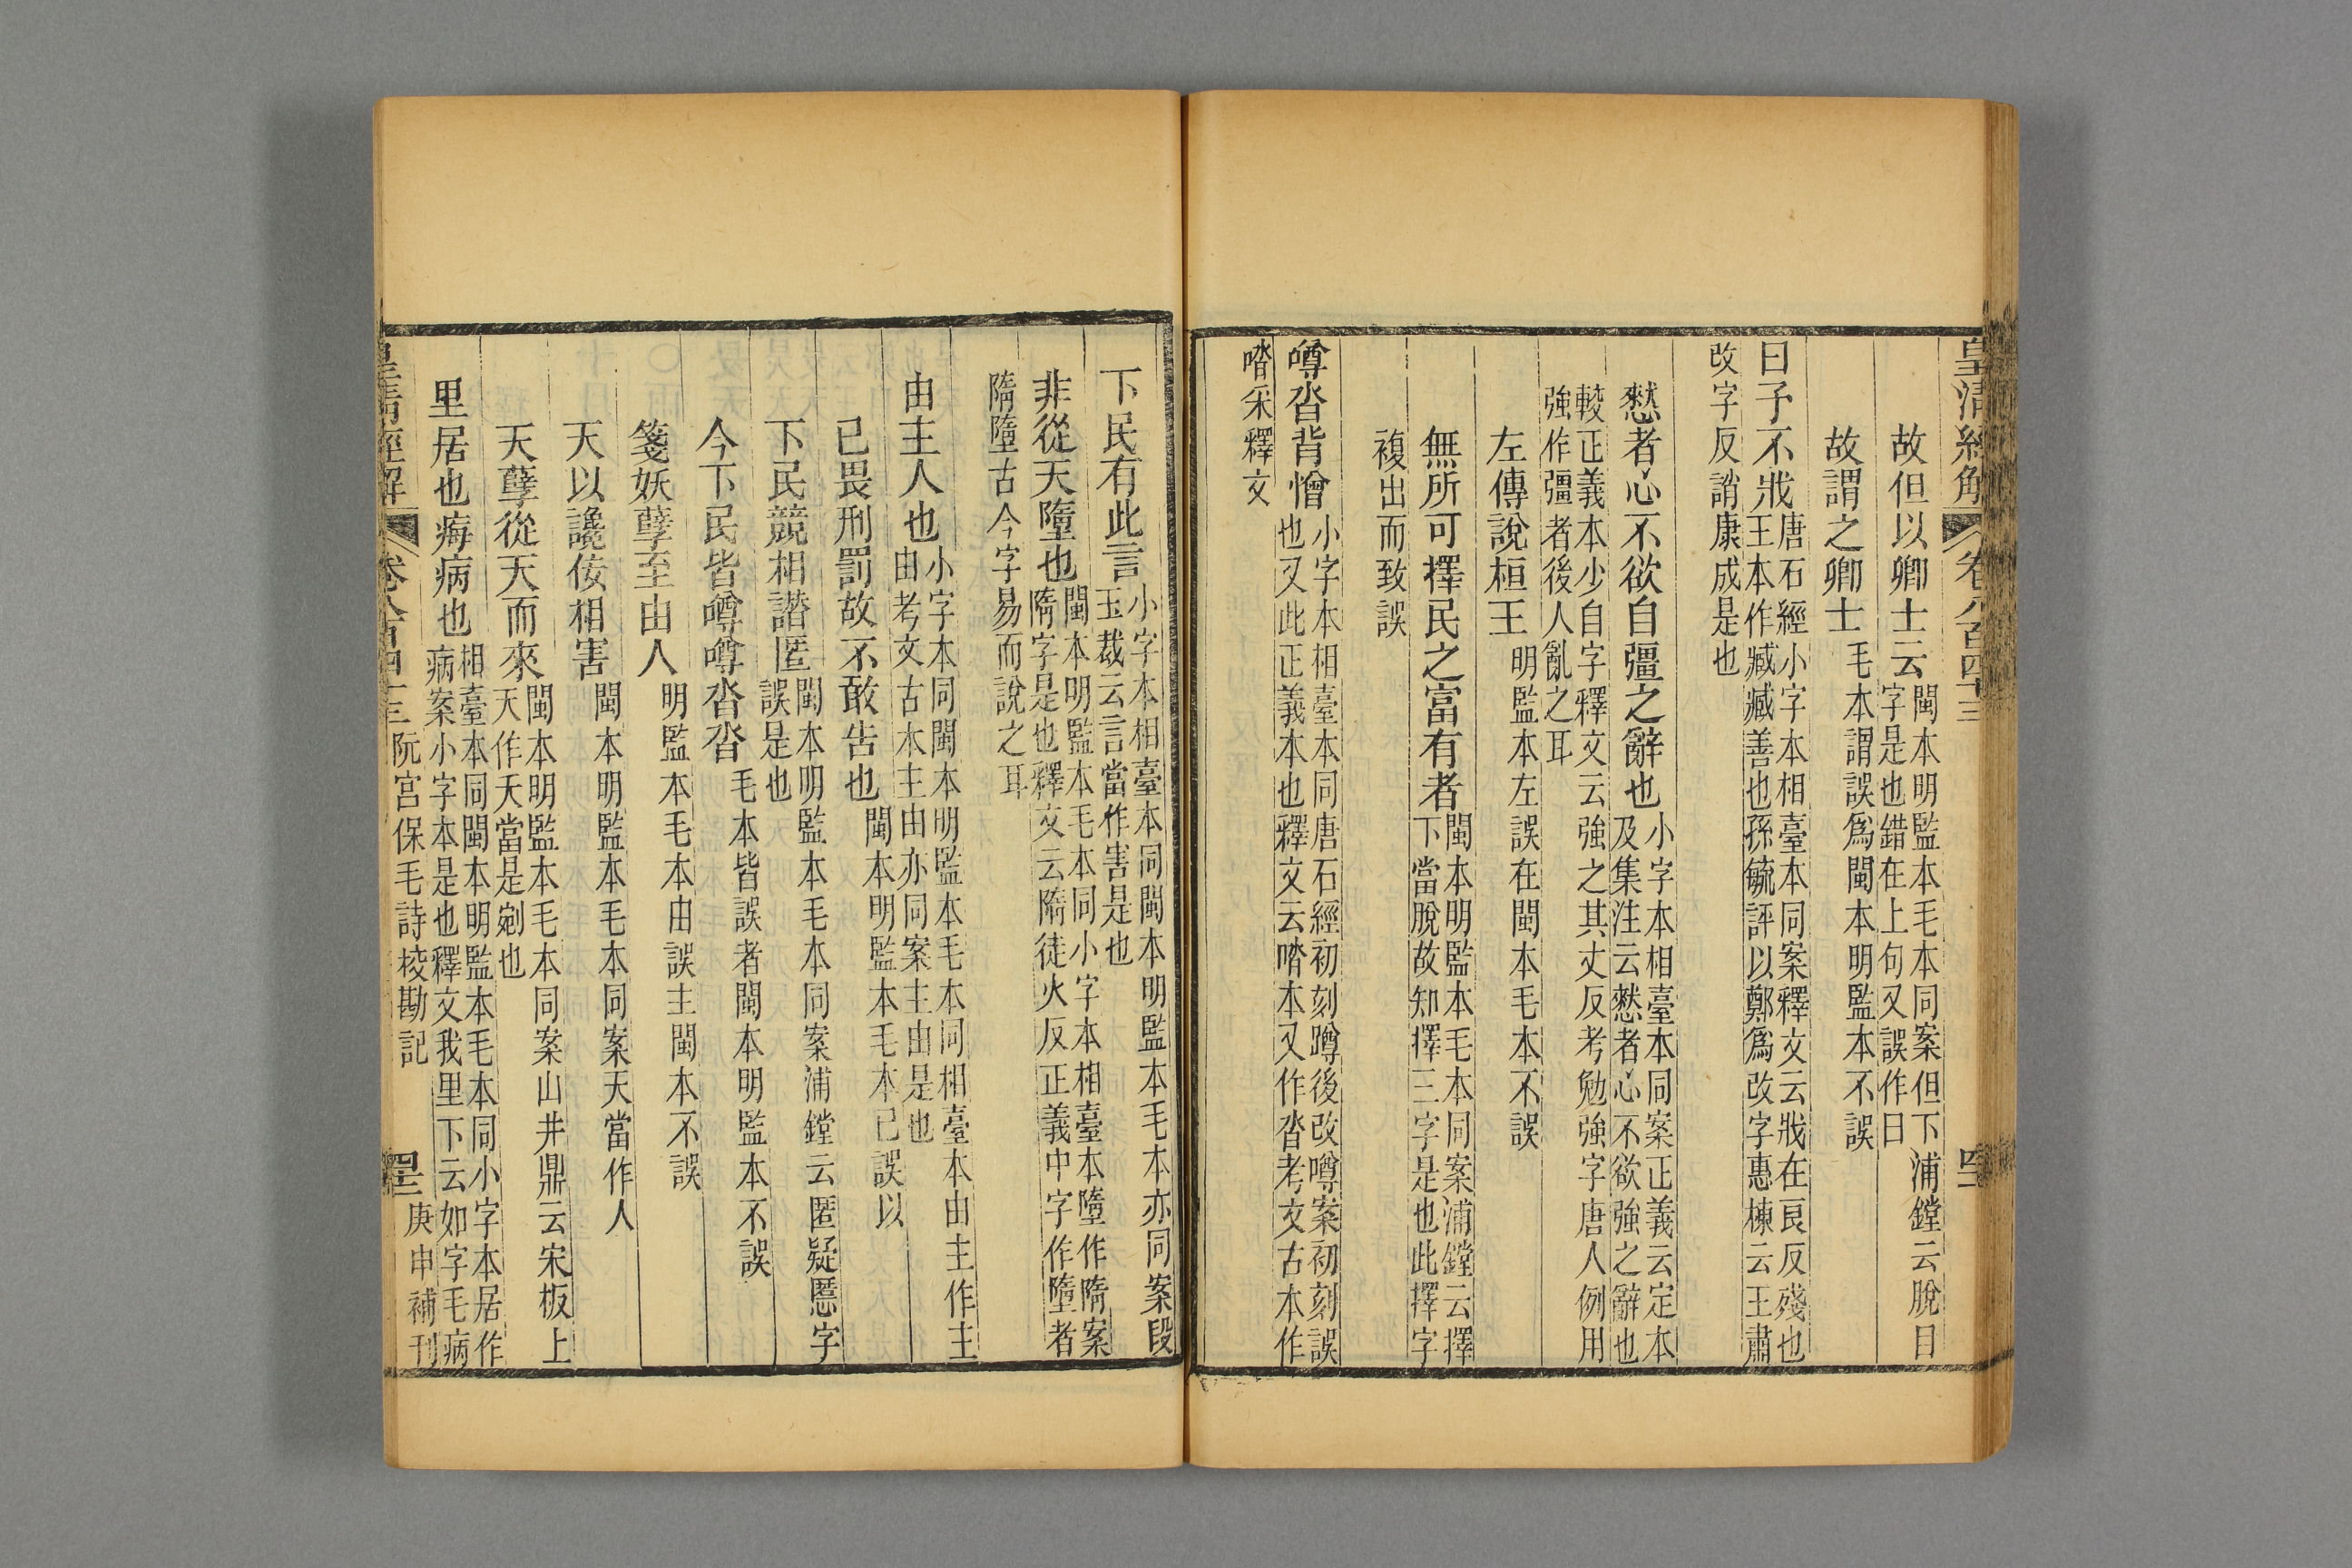 皇清經解 卷八百四十三
故但以卿士云閩本明監本毛本同案但下浦鏜云脫目
字是也錯在上句又誤作日
故謂之卿士毛本謂誤爲閩本明監本不誤
曰予不戕唐石經小字本相臺本同案釋文云戕在良反殘也
王本作臧臧善也孫毓評以鄭爲改字惠棟云王肅
改字反誚康成是也
憖者心不欲自彊之辭也小字本相臺本同案正義云定本
及集注云憖者心不欲強之辭也
較正義本少自字釋文云強之其丈反考勉強字唐人例用
強作彊者後人亂之耳
左傳說桓王明監本左誤在閩本毛本不誤
無所可擇民之富有者閩本明監本毛本同案浦鏜云擇
下當脫故知擇三字是也此擇字
複出而致誤
噂沓背憎小字本相臺本同唐石經初刻蹲後改噂案初刻誤
也又此正義本也釋文云噆本又作沓考文古本作
噆采釋文
下民有此言小字本相臺本同閩本明監本毛本亦同案段
玉裁云言當作害是也
非從天墮也閩本明監本毛本同小字本相臺本墮作隋案
隋字是也釋文云隋徒火反正義中字作墮者
隋墮古今字易而說之耳
由主人也小字本同閩本明監本毛本同相臺本由主作主
由考文古本主由亦同案主由是也
已畏刑罰故不敢告也閩本明監本毛本已誤以
下民競相譖匿閩本明監本毛本同案浦鏜云匿疑慝字
誤是也
今下民皆噂噂沓沓毛本皆誤者閩本明監本不誤
箋妖孽至由人明監本毛本由誤主閩本不誤
天以讒佞相害閩本明監本毛本同案天當作人
天孽從天而來閩本明監本毛本同案山井鼎云宋板上
天作夭當是剜也
里居也痗病也相臺本同閩本明監本毛本同小字本居作
病案小字本是也釋文我里下云如字毛病
皇清經解 卷八百四十三 阮宮保毛詩校勘記 庚申補刊